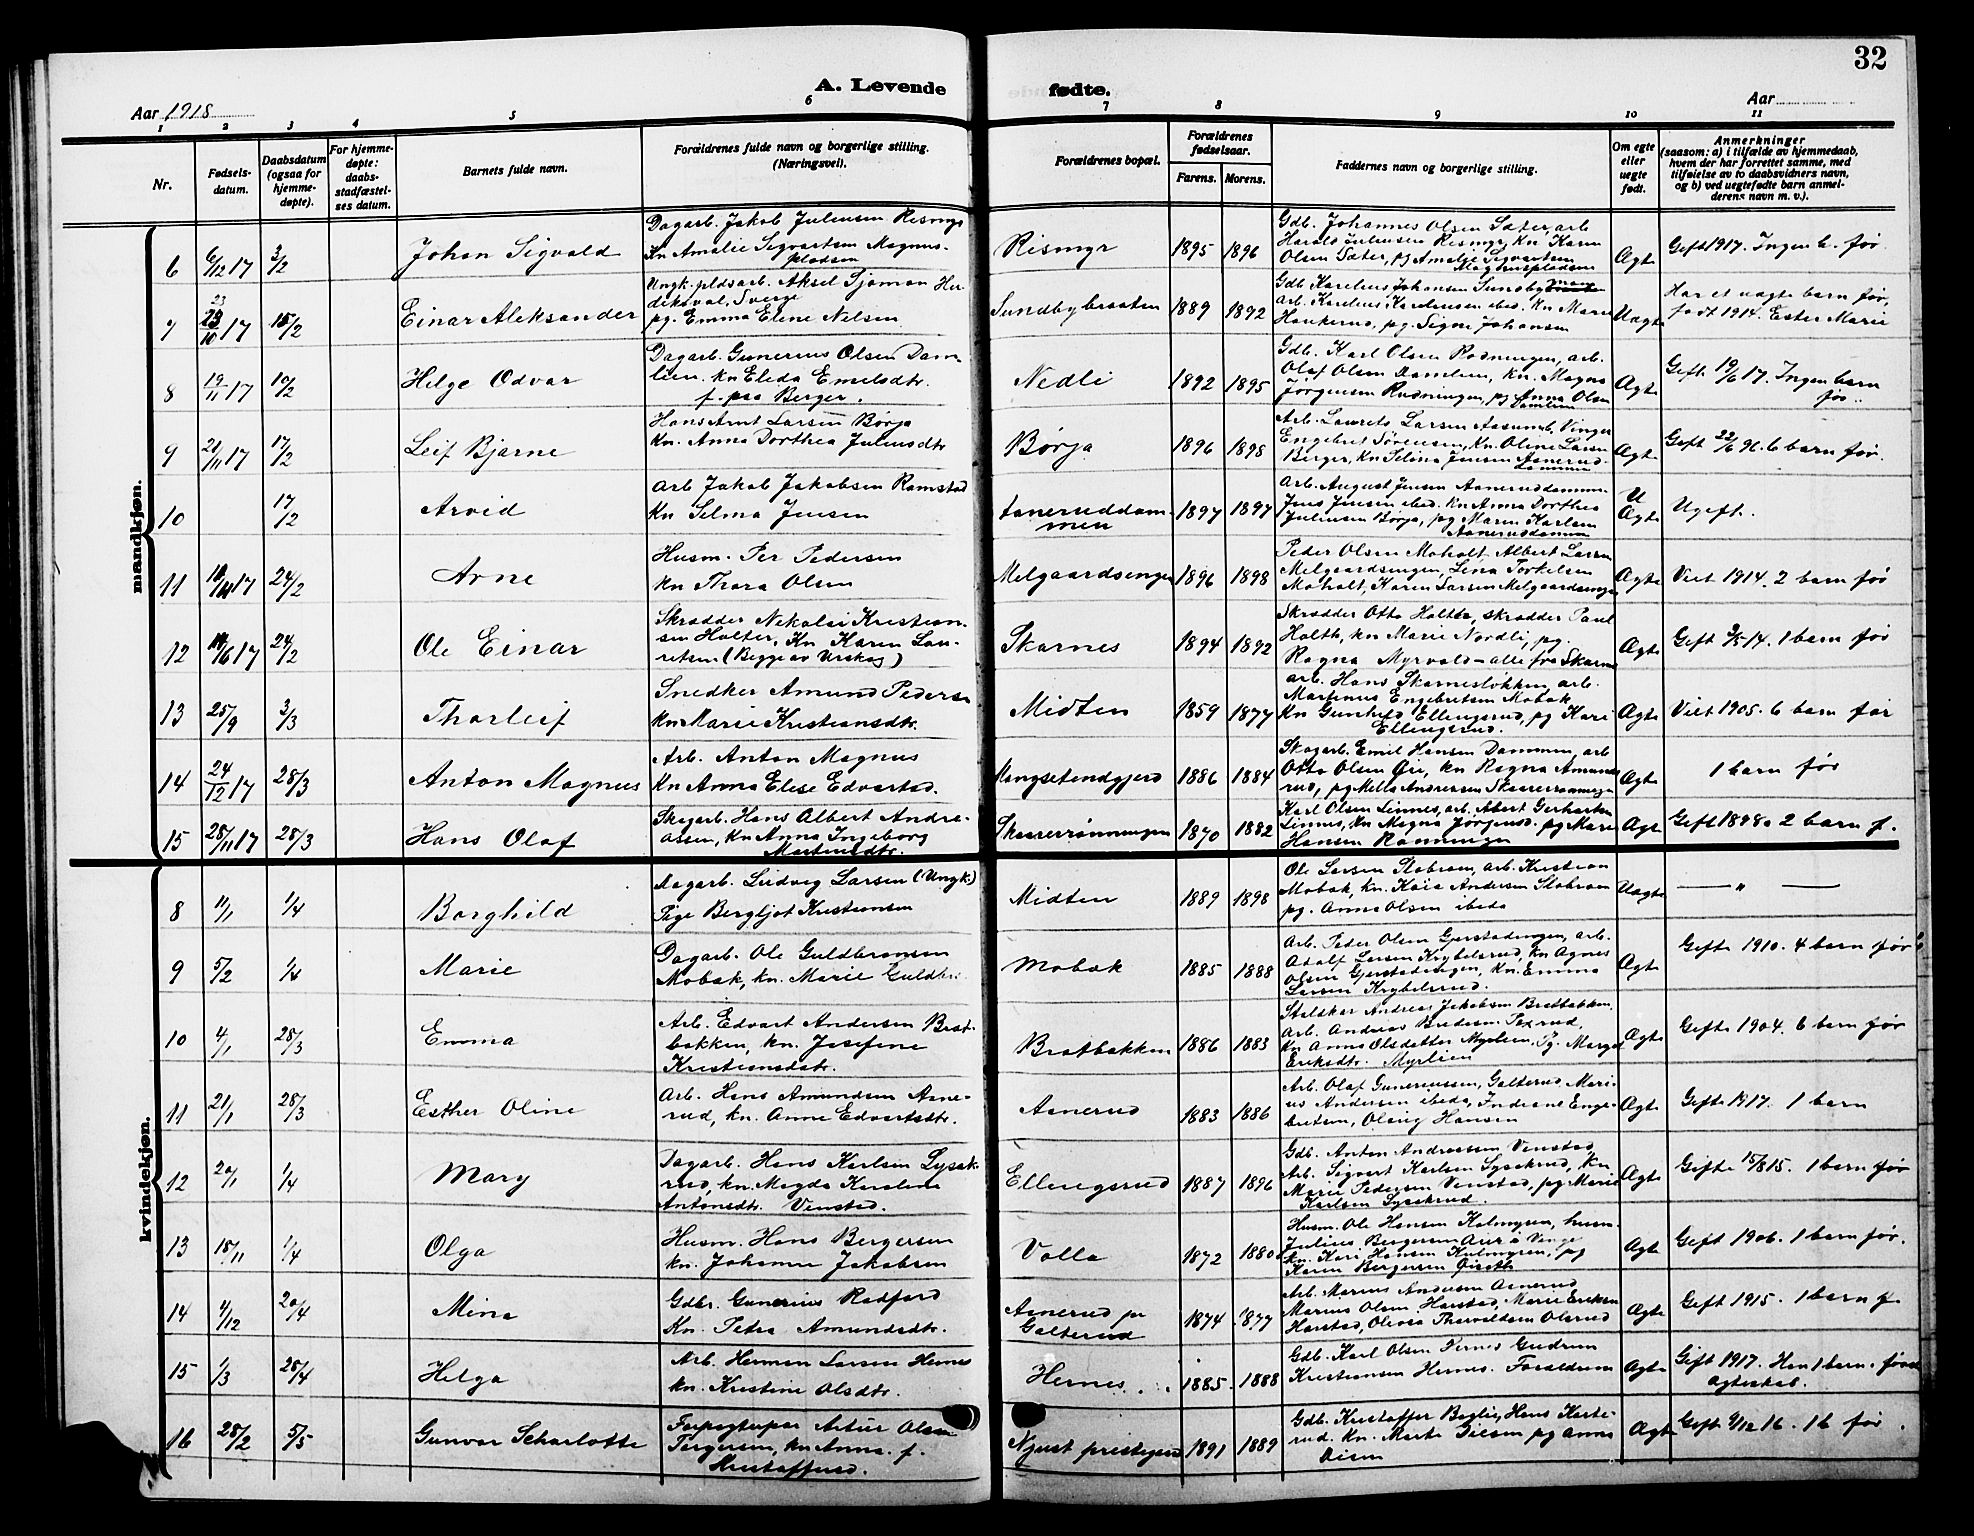 32
A. Levende fødte.
Aar 1918
Aar
1 2 3 4 5 6 7 8 9 10 11
Nr.
Fødsels-
datum.
Daabsdatum
(ogsaa for
hjemme-
døpte).
For hjemme-
døpte:
daabs-
stadfæstel-
ses datum.
Barnets fulde navn.
Forældrenes fulde navn og borgerlige stilling.
(Næringsvei).
Forældrenes bopæl.
Forældrenes
fødselsaar.
Farens. Morens.
Faddernes navn og borgerlige stilling.
Om egte
eller
uegte
født.
Anmerkninger
(saasom: a) i tilfælde av hjemmedaab,
hvem der har forrettet samme, med
tilføielse av to daabsvidners navn,
og b) ved uegtefødte barn anmel-
derens navn m. v.).
mandkjøn.
6 6/12 17 3/2 Johan Sigvald
Dagarb. Jakob Juliussen Rismyr
Kn Amalie Sigvartsen Magnus-
pladsen
Rismyr 1895 1896
Gdb. Johannes Olsen Sæter, arb
Harald Juliussen Rismyr, Kn Karen
Olsen Sæter, pg Amalie Sigvartsen
Magnuspladsen
Ægte Gift 1917. Ingen b. før.
7 23/10 17 15/2 Einar Aleksander
Ungk. pldsarb. Aksel Sjøman Hu-
diksval, Sverge
pg. Emma Elene Nilsen
Sundbybraaten 1889 1892
Gdb Karelius Johansen Sundby
arb. Karelius Karelinsen ibid. Kn Marie
Haukerud, pg Signe Johansen
Uægte Har et uægte barn før,
født 1914. Ester Marie
8 19/11 17 10/2 Helge Odvar
Dagarb. Gunerius Olsen Dam-
lien. kn Elida Emilsdtr.
f. paa Berger.
Nedli 1892 1895
Gdb. Karl Olsen Rødningen, arb.
Olaf Olsen Damlien, kn. Magna
Jørgensen Rudningen, pg Anna Olsen
Damlien
Ægte Gift 19/6 17. Ingen barn
før.
9 21/11 17 17/2 Leif Bjarne
Hans Arnt Larsen Børja
Kn. Anna Dorthea Juliusdtr
Børja 1896 1898
Arb. Laurits Larsen Aasumb. Vinger
Engebret Sørensen, Kn. Oline Larsen
Berger, Kn Selina Jensen Aanerud-
dammen
Ægte Gift 22/6 96. 6 barn før.
10 17/2 Arvid
Arb Jakob Jakobsen Ramstad
Kn Selma Jensen
Aaneruddam-
men 1897 1897
Arb. August Jensen Aaneruddammen
Jens Jensen ibid. Kn Anna Dorthea
Juliussen Børja, pg Maren Karlsen
Aaneruddammen
U
Ægte Ugift.
11 17 24/2 Arne
Husm. Per Pedersen
kn Thora Olsen
Melgaardsengen 1896 1898
Peder Olsen Moholt Albert Larsen
Melgaardsengen, Lina Torkelsen
Moholt, Karen Larsen Melgaardsengen
Ægte Viet 1914. 2 barn før
12 17 24/2 Ole Einar
Skrædder Nikolai Kristian-
sen Holter, Kn Karen Lau-
retsen (Begge av Urskog)
Skarnes 1894 1892
Skrædder Otto Holter, skrædder Paul
Holth, kn Marie Nordli, pg.
Ragna Myrvold - alle fra Skarnes
Ægte Gift 3/5 14. 1 barn før
13 25/9 3/3 Thorleif
Snedker Amund Pedersen
kn Marie Kristiansdtr.
Midten 1859 1877
arb. Hans Skarnesløkken, arb.
Martinus Engebretsen Mobæk
Kn Gunhild Ellingsrud, pg Kari
Ellingsrud.
Ægte Viet 1905. 6 barn før
14 24/12 17 28/3 Anton Magnus
Arb. Anton Magnus
Kn Anna Elise Edvartsd.
Kongsetendgjerd 1886 1884
Skogarb. Emil Hansen Dammen, arb
Otto Olsen Øie, kn Ragna Amunds-
rud, pg Milla Andersen Skaarerrønningen
Ægte 1 barn før
15 28/11 17 28/3 Hans Olaf
Skogarb. Hans Albert Andre-
assen, kn Anna Ingeborg
Martinusdtr.
Skaarerrønningen 1870 1882
Karl Olsen Linnes, arb. Albert Gerhartsen
Linnes, kn Magna Jørgensd. pg Marie
Hansen Rønningen
Ægte Gift 1898. 2 barn f.
kvindekjøn.
8 11/1 1/4 Borghild
Dagarb. Ludvig Larsen (Ungk.)
Pige Bergljot Kristiansen
Midten 1889 1898
Ole Larsen Slobraan, arb. Kristian
Mobæk, kn. Kaia Andersen Slobraan
pg. Anna Olsen ibeda
Uægte — " —
9 5/2 1/4 Marie
Dagarb. Ole Guldbransen
Mobæk, kn. Marie Guldbr.
Mobæk 1885 1888
Arb. Peder Olsen Gjerstadengen, arb.
Adolf Larsen Krybelsrud, kn Agnes
Olsen Gjerstadengen, kn. Emma
Larsen Krybelsrud.
Ægte Gifte 1910. 4 barn før
10 4/1 28/3 Emma
Arb. Edvart Andersen Brat-
bakken, kn. Josefine
Kristiansdtr.
Bratbakken 1886 1883
Andreas Jakobsen Bratbakken
Arb. Andreas Bredesen Texrud,
kn Anna Olsdatter Myrlien, Pg. Margit
Eriksdtr. Myrlien
Ægte Gifte 1904. 6 barn før
11 21/1 28/3 Esther Oline
Arb. Hans Amundsen Aane-
rud, kn. Anne Edvartsdtr.
Aanerud 1883 1886
Arb. Olaf Guneriussen, Galterud, Mari-
us Andersen ibeda, Indiane Enge-
bretsen, Olaug Hansen
Ægte Gifte 1917. 1 barn
12 20/1 1/4 Mary
Dagarb. Hans Karlsen Lysak-
rud, kn. Magda Karoline
Antonsdtr. Venstad.
Ellingsrud 1887 1896
Gdb. Anton Andreassen Venstad
Arb. Sigvart Karlsen Lysakrud, Kn
Marie Pedersen Venstad, pg Marie
Karlsen Lysakrud.
Ægte Gifte 15/8 15. 1 barn før
13 18/11 1/4 Olga
Husm. Hans Bergersen
kn. Johanne Jakobsen
Volla 1872 1880
Husm. Ole Hansen Kolmyren, husm.
Julius Bergersen
kn. Kari Hansen Kulmyren, pg
Karen Bergersen
Ægte Gift 1906. 1 barn før.
14 4/12 20/4 Mina
Gdbr. Gunerius Rødfjord
Kn. Petra Amundsdtr.
Aanerud pr
Galterud 1874 1877
Arb. Marius Andersen Aanerud
Marius Olsen Harstad, Marie Eriksen
Harstad, Olivia Thorvaldsen Olsrud
Ægte Gift 1915. 1 barn f
15 1/3 28/4 Helga
Arb. Herman Larsen Hernes
kn. Kristine Olsdtr.
Hernes 1885 1888
Gdb. Karl Olsen Gudrun
Kristiansen Hernes. Forældrene
Ægte Gift 1917. Han 1 barn. før
ægteskab.
16 28/2 5/5 Gunvor Scharlotte
Artur Olsen
Torgersen, kn Anna. f.
Kristoffersd.
1891 1889
Gdb. Kristoffer Boglie, Hans Kaste-
rud. Kn. Marte Nilsen pg Anna
Olsen
Ægte Gift 9/12 16. 1b før